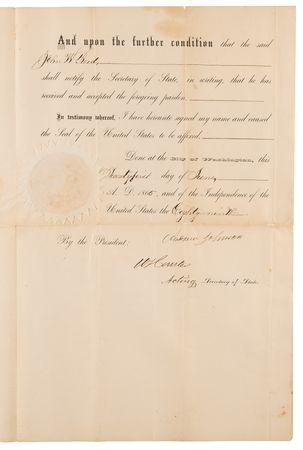 And upon the further condition that the said
John W.
shall notify the Secretary of State, in writing, that he has
received and accepted the foregoing pardon.
In testimony whereof, I have hereunto signed my name and caused
the Seal of the United States to be affixed.
Done at the City of Washington, this
day of June
A. D. 1865, and of the Independence of the
United States the Eighty-ninth
By the President: Andrew Johnson
Acting Secretary of State.